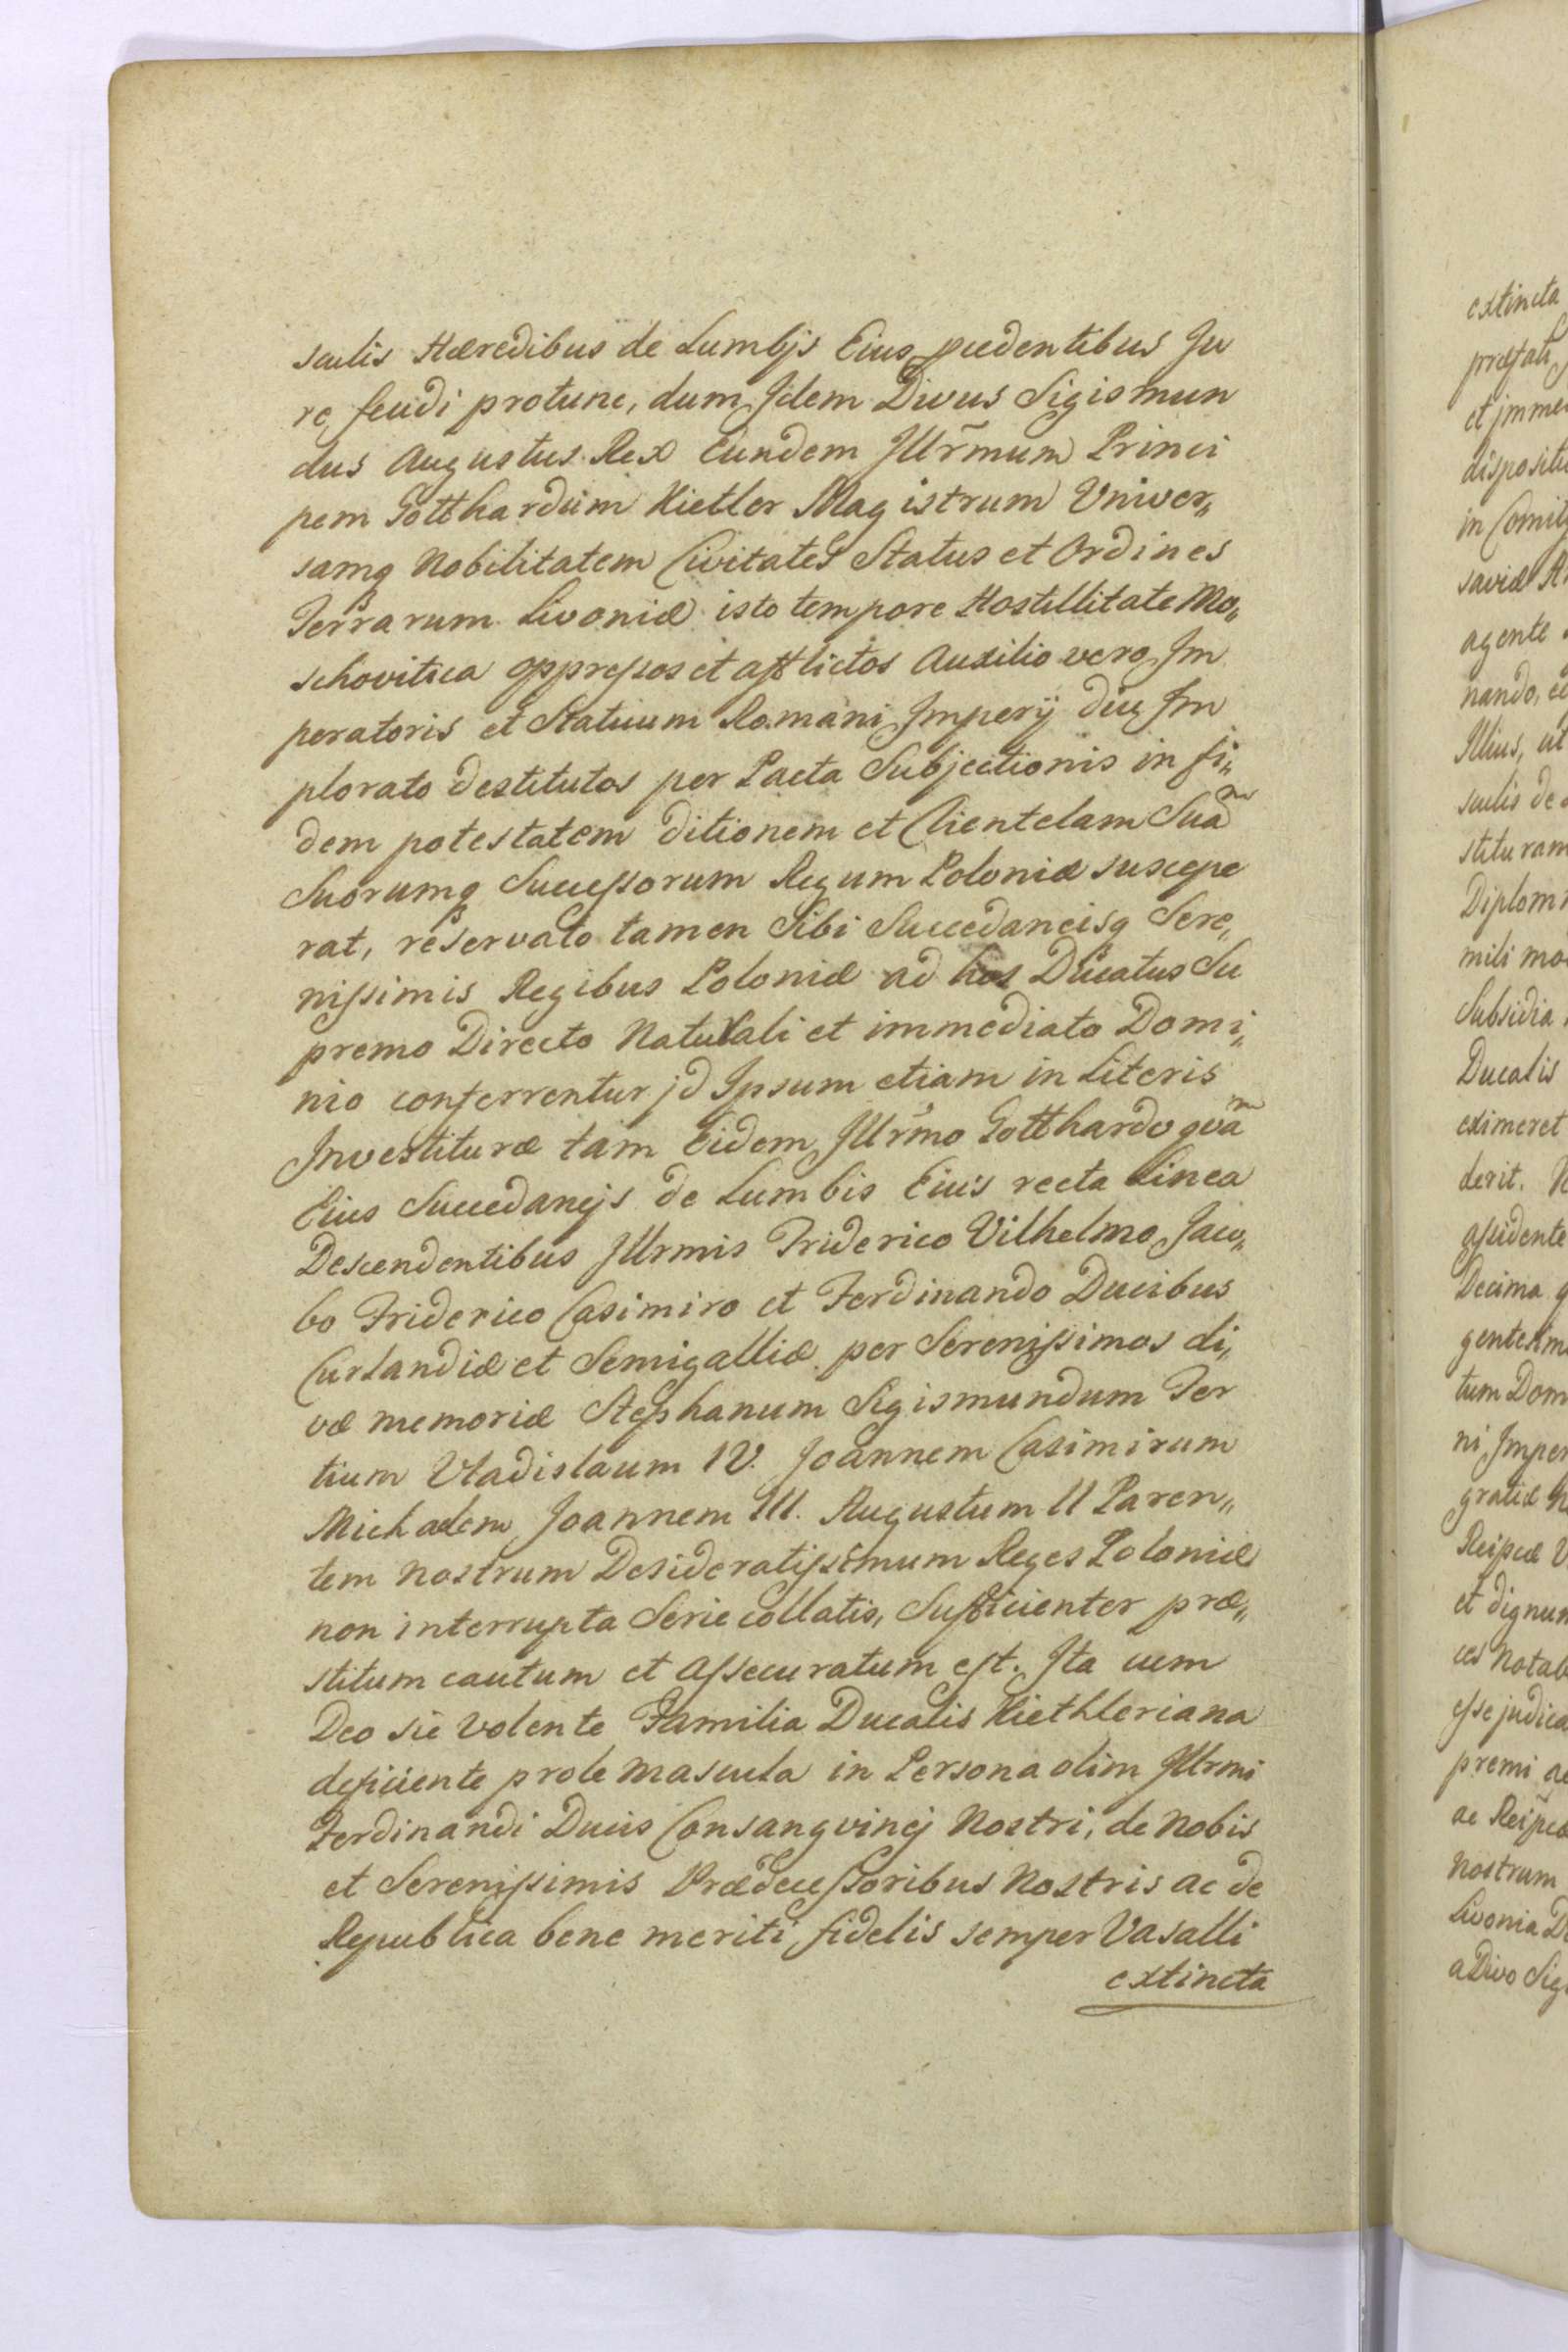 sculis Hæredibus de Lumbijs Eius prædentibus Ju
re feudi protunc, dum Idem Divus Sigismun
dus Augustus Rex Eundem Illr̃mum Princi
pem Gotthardum Kietler Magistrum Univer„
samq Nobilitatem Civitates Status et Ordines
Terrarum Livoniæ isto tempore Hostillitate Mo„
schovitica oppressos et afflictos Auxilio vero Im
peratoris et Statuum Romani Imperij diu Im
plorato destitutos per Pacta Subjectionis in fi„
dem potestatem ditionem et Clientelam Suam
Suorumq Successorum Regum Poloniæ suscepe
rat, reservato tamen Sibi Succedaneisq Sere„
nissimis Regibus Poloniæ ad hos Ducatus Su
premo Directo Naturali et immediato Domi„
nio conferrentur jd Ipsum etiam in Literis
Investituræ tam Eidem Illr̃mo Gotthardo qvam
Eius Succedanejs de Lumbis Eius recta Linea
Descendentibus Illrmis Friderico Vilhelmo Jaco„
bo Friderico Casimiro et Ferdinando Ducibus
Curlandiæ et Semigalliæ per Serenissimos di„
væ memoriæ Stephanum Sigismundum Ter
tium Vladislaum IV. Joannem Casimirum
Michaelem Joannem III. Augustum II Paren„
tem nostrum Desideratissimum Reges Poloniæ
non interrupta Serie collatis, Sufficienter præ„
stitum cautum et assecuratum est. Ita cum
Deo sic volente Familia Ducalis Kiethleriana
deficiente prole mascula in Persona olim Illrmi
Ferdinandi Ducis Consangvinej Nostri, de Nobis
et Serenissimis Prædecessoribus Nostris ac de
Republica bene meriti fidelis semper Vasalli
extincta
extincta
et jmme
in Comit
agente
nando, e
Illius, ut
sculis de
stituram
Diplom
mili mo
Subsidia
Ducalis
eximeret
derit.
assidente
Decima q
gentesim
tum Dom
ni Imper
gratiæ
et dignum
ces Notab
esse judica
premi
nostrum
Livonia D
a Divo Sig